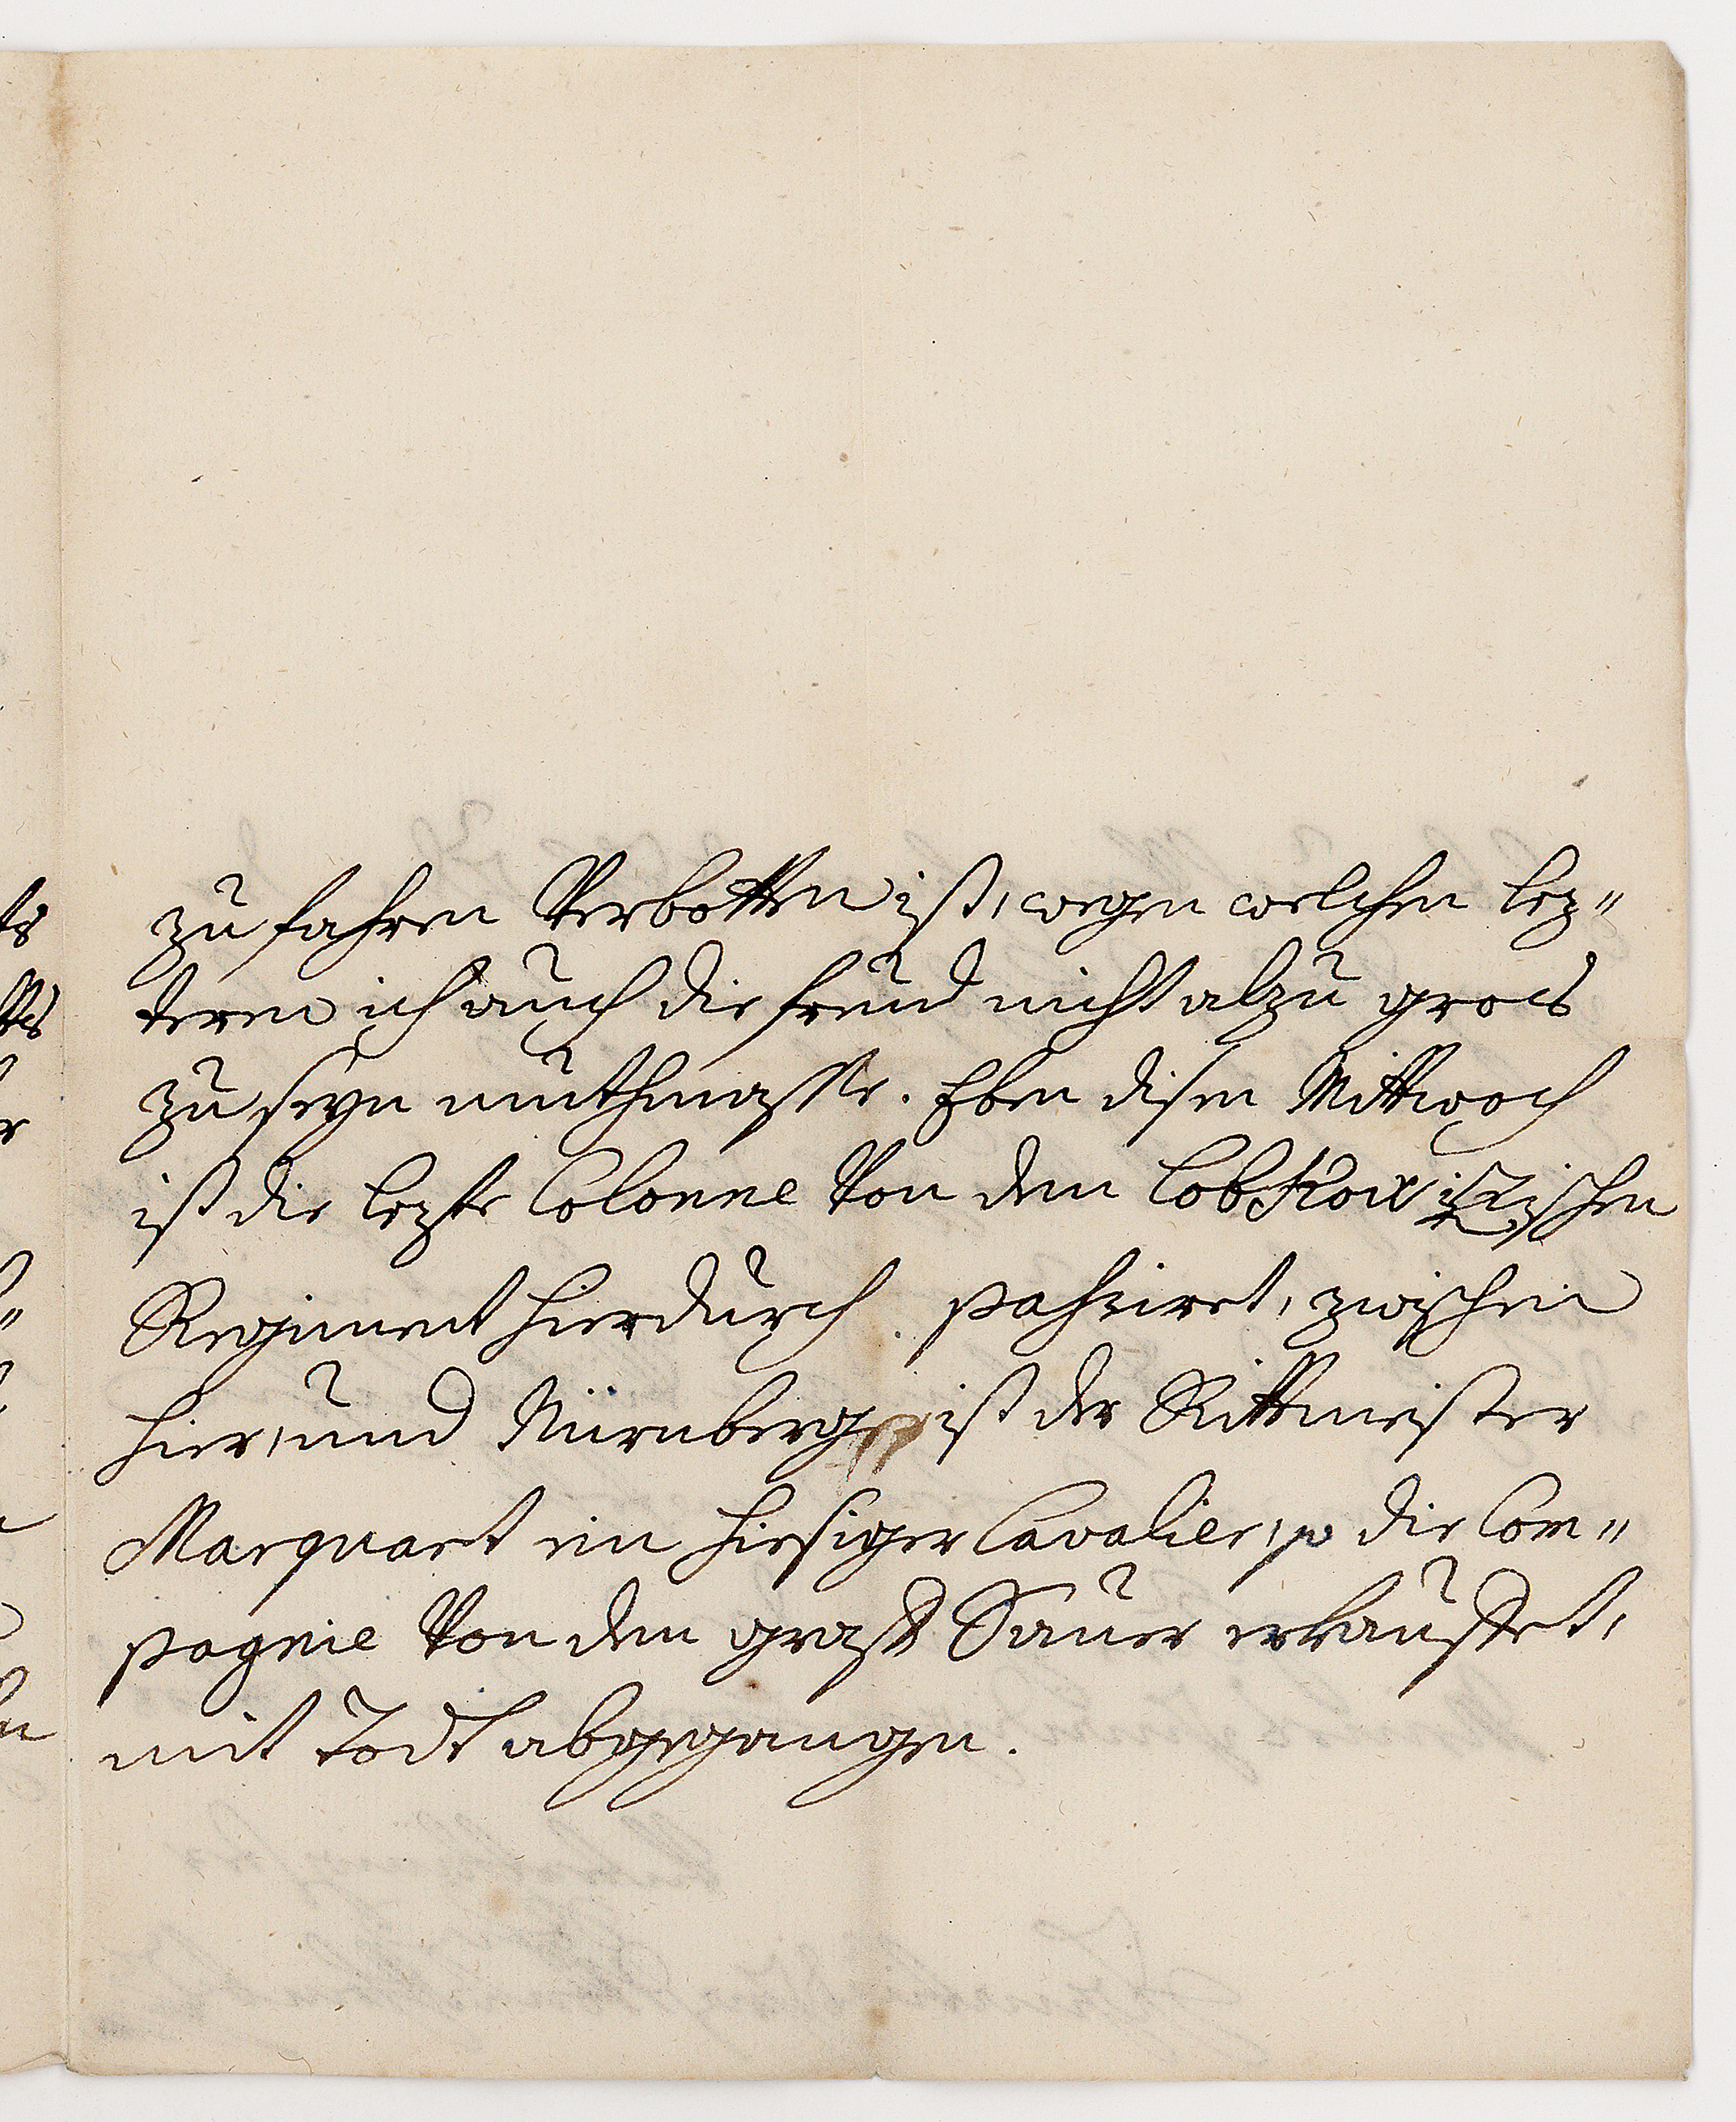 zu fahren Verbotten ist, wegen welchen lez"
teren ich auch die freud nicht alzu gros
zu seyn muthmasse. Eben disen Mittwoch
ist die lezte Colonne Von dem Lobkowizischen
Regiment hierdurch passiret, zwischen
hier, und Nürnberg ist der Rittmeister
Marquart ein hiesiger Cavalier, so die Com"
pagnie Von dem graff Sauer erkauffet,
mit Todt abgegangen.